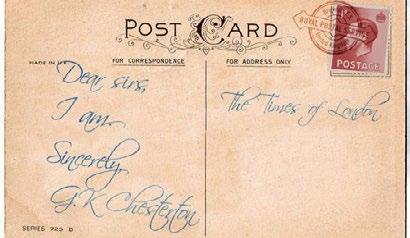 POST CARD
MADE IN
FOR CORRESPONDENCE
FOR ADDRESS ONLY
ROYAL POSTAL
POSTAGE
Dear sirs,
I am
Sincerely,
G.K Chesterton
The Times of London
SERIES 723 B